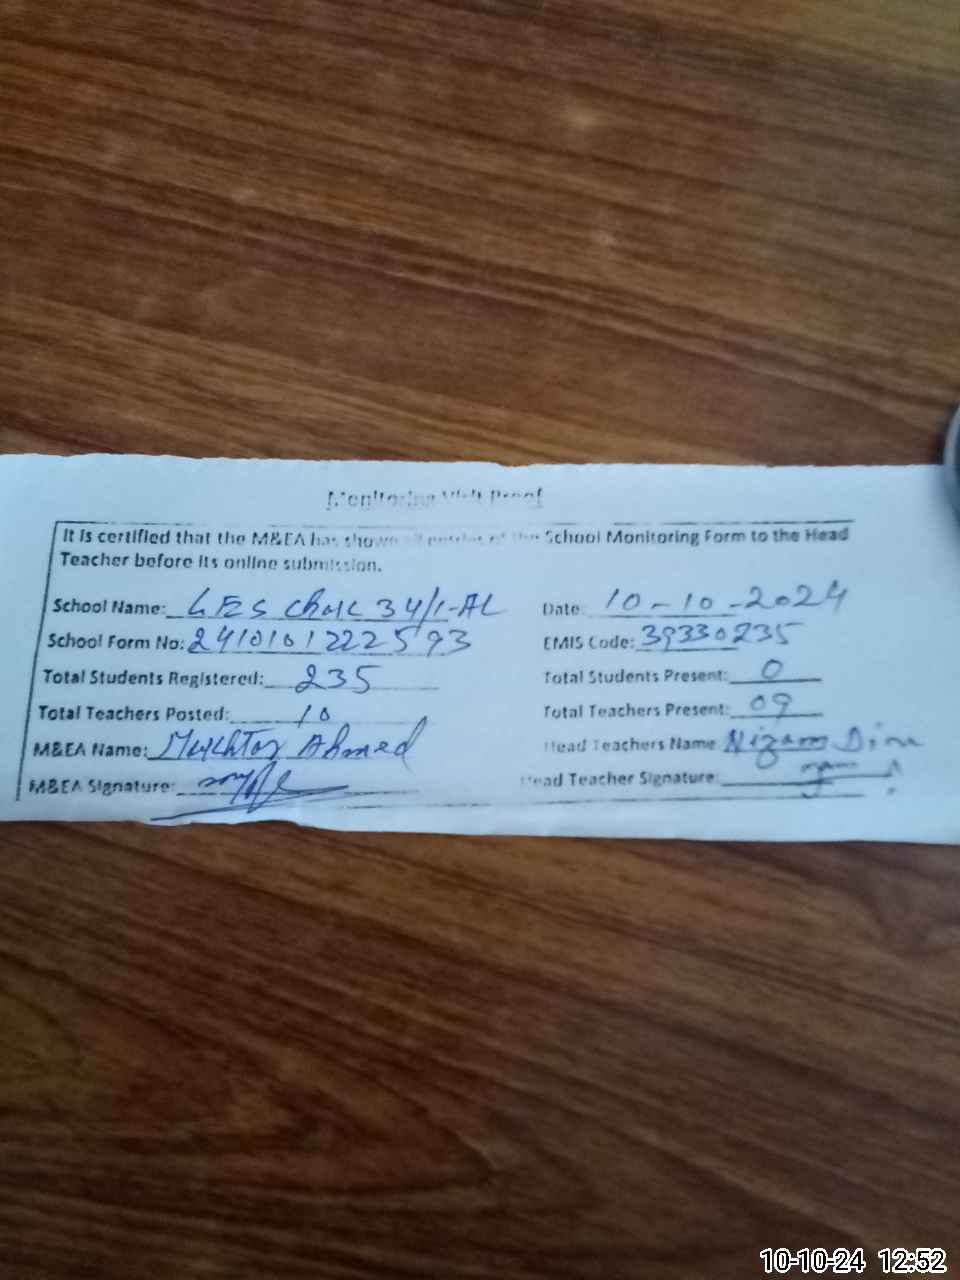 Monitoring Visit Proof
It is certified that the M&EA has shown all entries of the School Monitoring Form to the Head
Teacher before its online submission.
School Name: GES Chak 34/1-AL Date: 10-10-2024
School Form No: 2410101222593 EMIS Code: 39330235
Total Students Registered: 235 Total Students Present: 0
Total Teachers Posted: 10 Total Teachers Present: 09
M&EA Name: Mukhtar Ahmed Head Teachers Name Nizam Din
M&EA Signature: Head Teacher Signature:
10-10-24 12:52